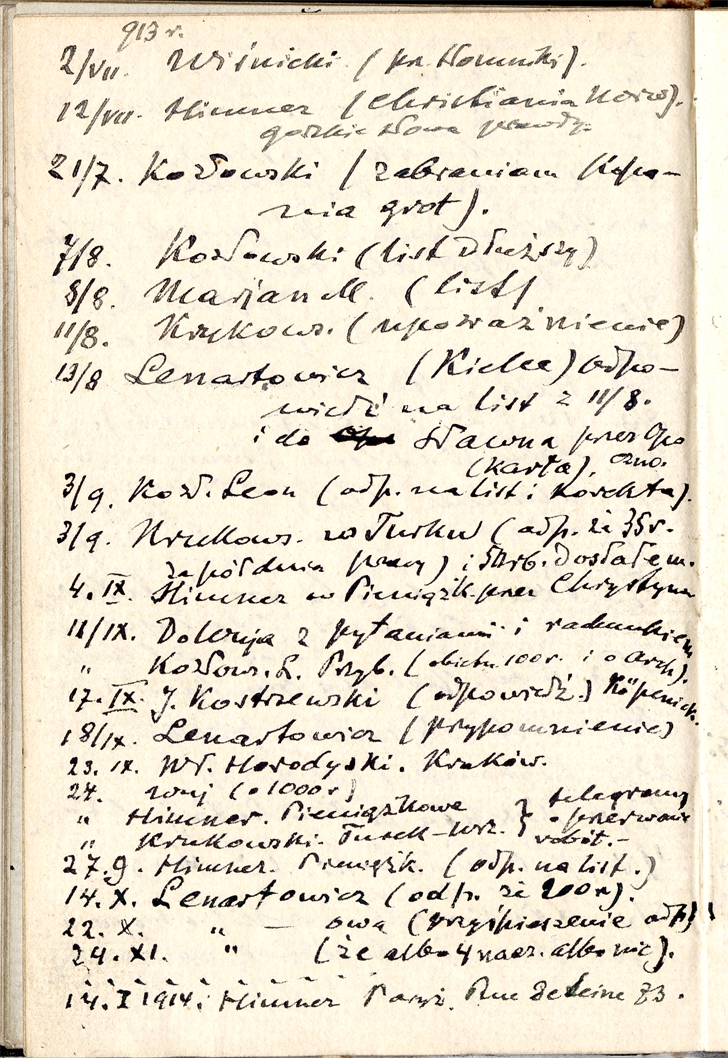 913 r.
2/VII. Wiśnicki (pr. Słomniki).
12/VII. Himner (Christiania Norw).
gorzkie słowa prawdy.
21/7. Kozłowski (zabraniam kopa-
nia grot).
7/8. Kozłowski (list dłuższy)
8/8. Marjan M. (list)
11/8. Krukows. (upoważnienie)
13/8 Lenartowicz (Kielce) odpo-
wiedź na list z 11/8.
i do Sława przez Opo
(karta), czno.
3/9. Kozł. Leon (odp. na list i korekta).
3/9. Krukows. w Turku (odp. że 35 r.
za pół dnia pracy) i 5 rb. dosłałem.
4. IX. Himner w Pieniążk. przez Chrystyna
11/IX. Doleruja z pytaniami i radunkiem
" Kozłows. L. Przyb. (100 r. i o arch).
17. IX. J. Kostrzewski (odpowiedź.) Köpenick.
18/IX. Lenartowicz (przypomnienie)
23. IX. Wł. Horodyski. Kraków.
24. (o 1000 r)
" Himner. Pieniążkowe } telegramy
" Krukowski. Turek-Wrz. } o przerwanie robót.-
27.9. Himner. Pieniążk. (odp. na list.)
14. X. Lenartowicz (odp. że 200 r).
22. X. " — owa (przyśpieszenie odp)!
24. XI. " (że albo 4 nacz. albo nic).
14. I 1914. Himner Paryż. Rue de Seine 73.